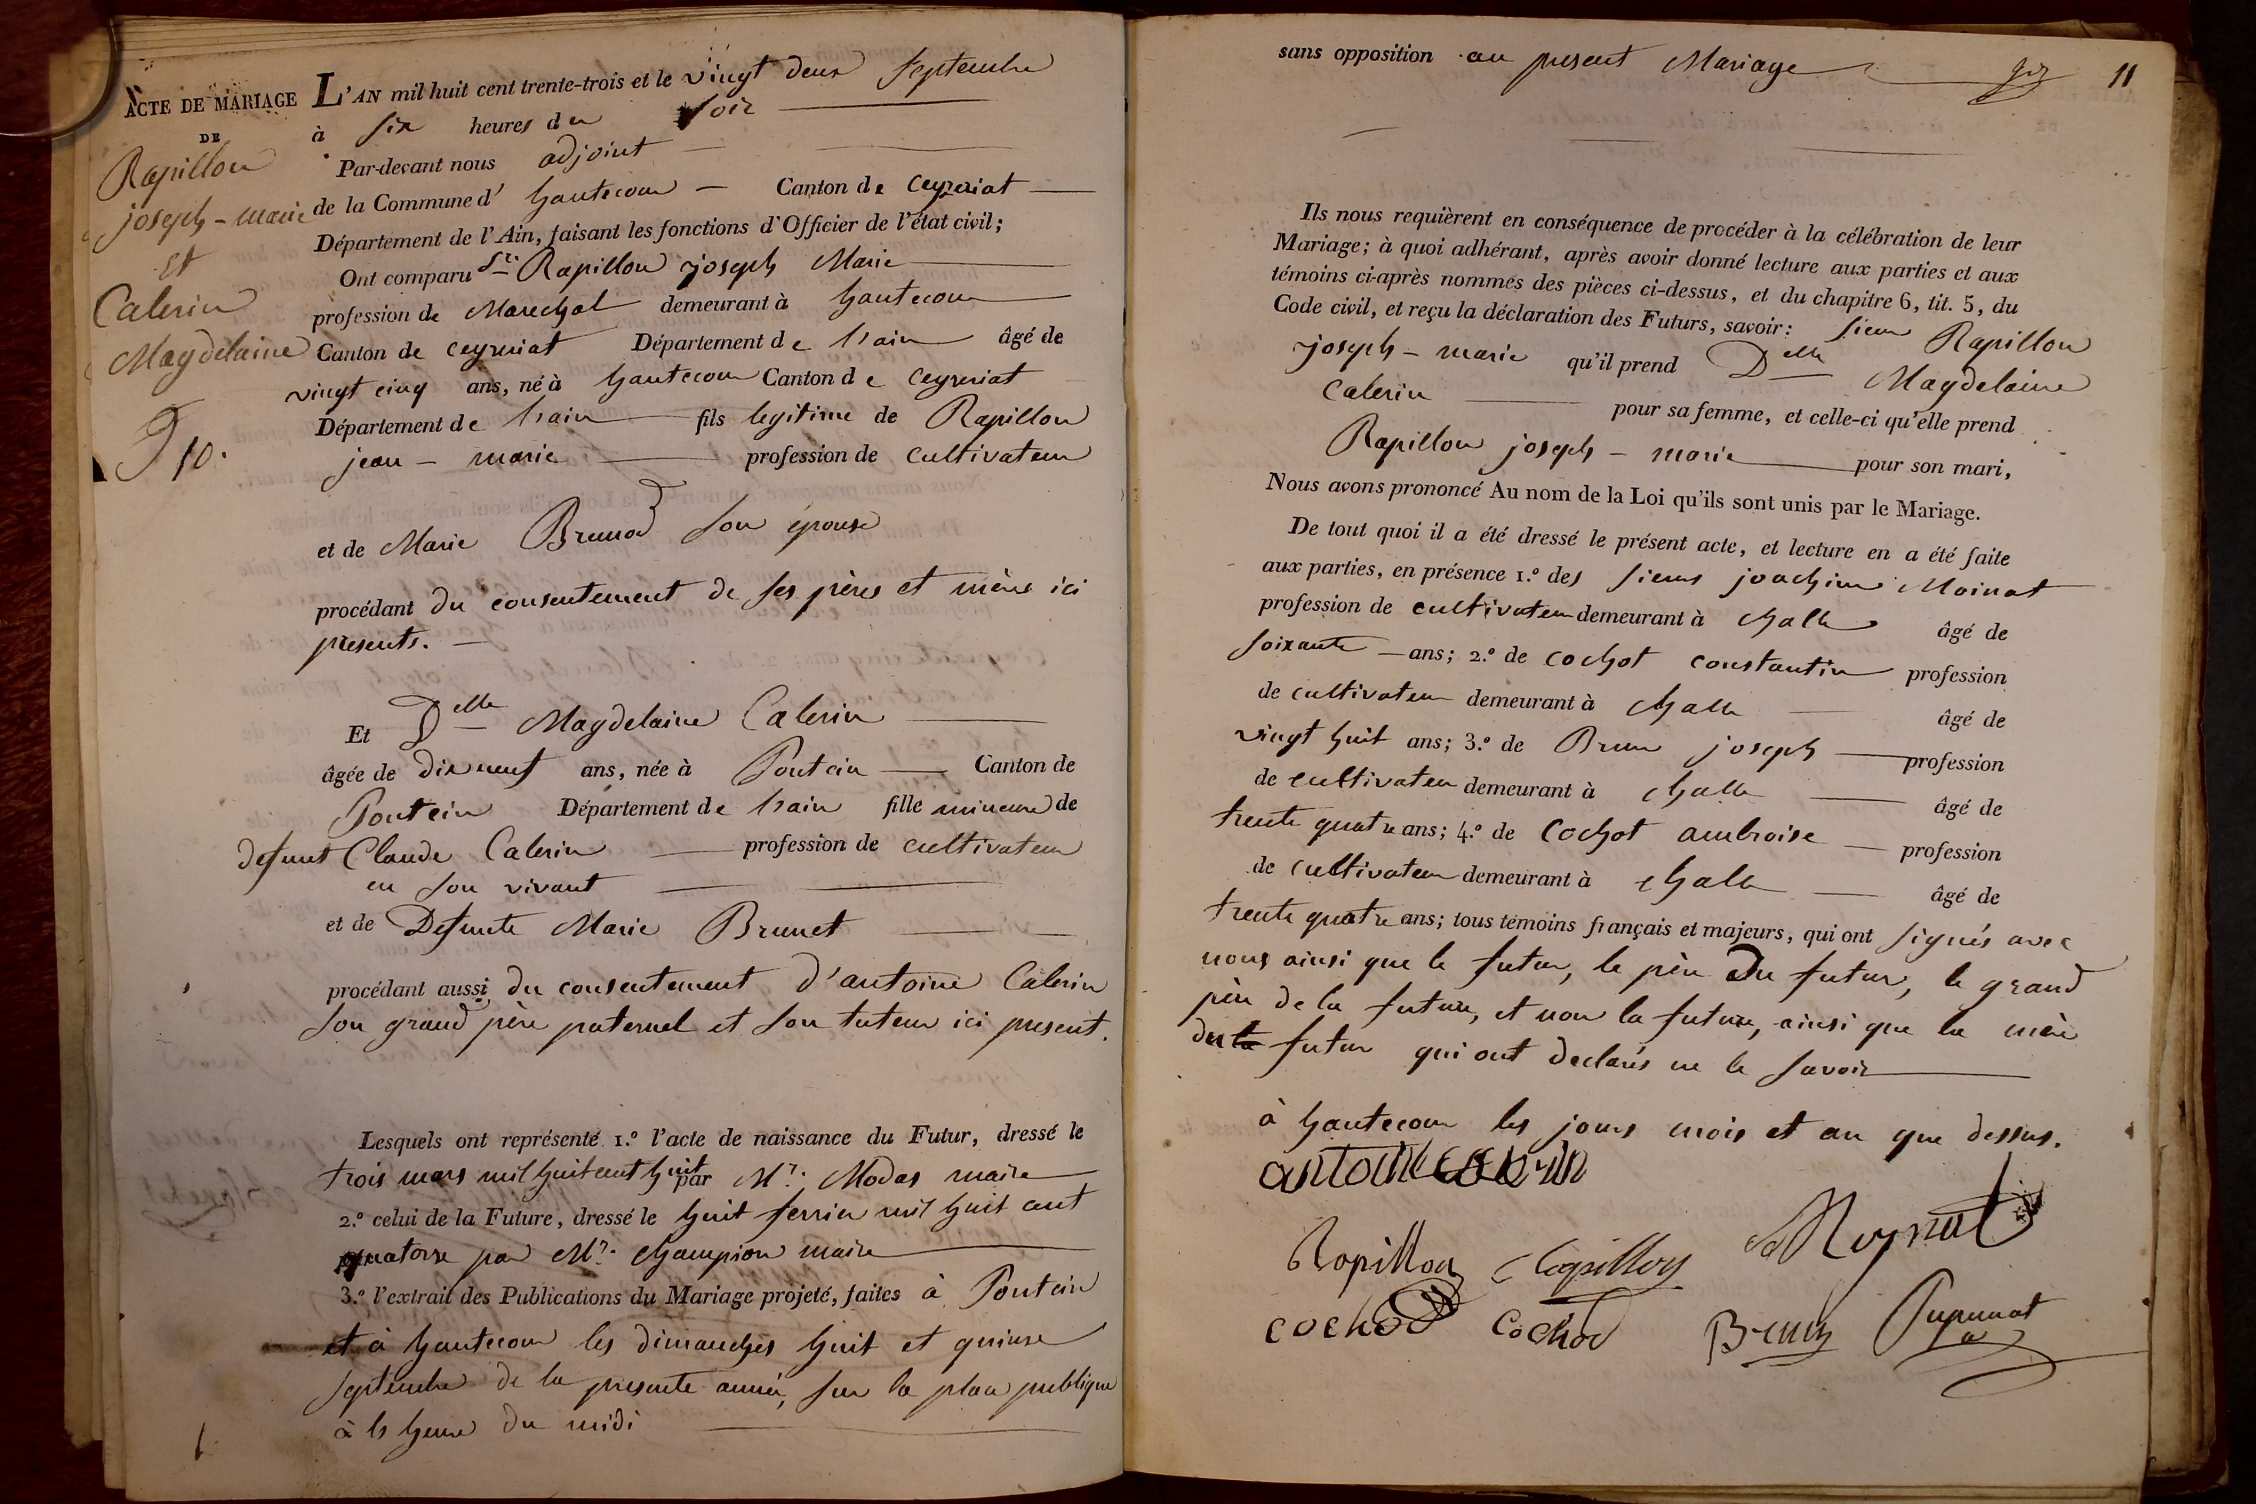 ACTE DE MARIAGE
DE
Rapillon
joseph - marie
Et
Calerin
Magdelaine
10.
L'AN mil huit cent trente-trois et le vingt deux septembre
à six heures du soir
Par-devant nous adjoint
de la Commune d' hautecour Canton de Ceyzeriat
Département de l'Ain, faisant les fonctions d'Officier de l'état civil;
Ont comparu Sr. Rapillon joseph Marie
profession de Marechal demeurant à hautecour
Canton de ceyzeriat Département de l'ain âgé de
vingt cinq ans, né à hautecour Canton de Ceyzeriat
Département de l'ain fils legitime de Rapillon
jean - marie profession de cultivateur
et de Marie Brunod son épouse
procédant du consentement de ses pères et mère ici
presents.
Et Delle Magdelaine Calerin
âgée de dix neuf ans, née à Pontein Canton de
Pontein Département de l'ain fille mineure de
defunt Claude Calerin profession de cultivateur
en son vivant
et de Defunte Marie Brunet
procédant aussi du consentement d'antoine Calerin
son grand père paternel et son tuteur ici present.
Lesquels ont représenté 1.º l'acte de naissance du Futur, dressé le
trois mars mil huit cent huit par Mr. Modas maire
2.º celui de la Future, dressé le huit ferrier mil huit cent
quatorze par Mr. Champion maire
3.º l'extrait des Publications du Mariage projeté, faites à Pontein
et à hautecour les dimanches huit et quinze
septembre de la presente année, sur la place publique
à la heure du midi
sans opposition au present Mariage
11
Ils nous requièrent en conséquence de procéder à la célébration de leur
Mariage; à quoi adhérant, après avoir donné lecture aux parties et aux
témoins ci-après nommés des pièces ci-dessus, et du chapitre 6, tit. 5, du
Code civil, et reçu la déclaration des Futurs, savoir: sieur Rapillon
joseph - marie qu'il prend Delle Magdelaine
Calerin pour sa femme, et celle-ci qu'elle prend
Rapillon joseph - marie pour son mari,
Nous avons prononcé Au nom de la Loi qu'ils sont unis par le Mariage.
De tout quoi il a été dressé le présent acte, et lecture en a été faite
aux parties, en présence 1.º des sieurs joachim Moinat
profession de cultivateur demeurant à challe âgé de
soixante ans; 2.º de cochot constantin profession
de cultivateur demeurant à challe âgé de
vingt huit ans; 3.º de Brun joseph profession
de cultivateur demeurant à challe âgé de
trente quatre ans; 4.º de Cochot ambroise profession
de cultivateur demeurant à challe âgé de
trente quatre ans; tous témoins français et majeurs, qui ont signés avec
nous ainsi que le futur, le père Du futur, le grand
père de la future, et non la future, ainsi que la mère
du futur qui ont declarés ne le savoir
à hautecour les jours mois et an que dessus.
antoine calerin
Rapillon Rapillon Moynat
cochod Cochod Brun Pupunat